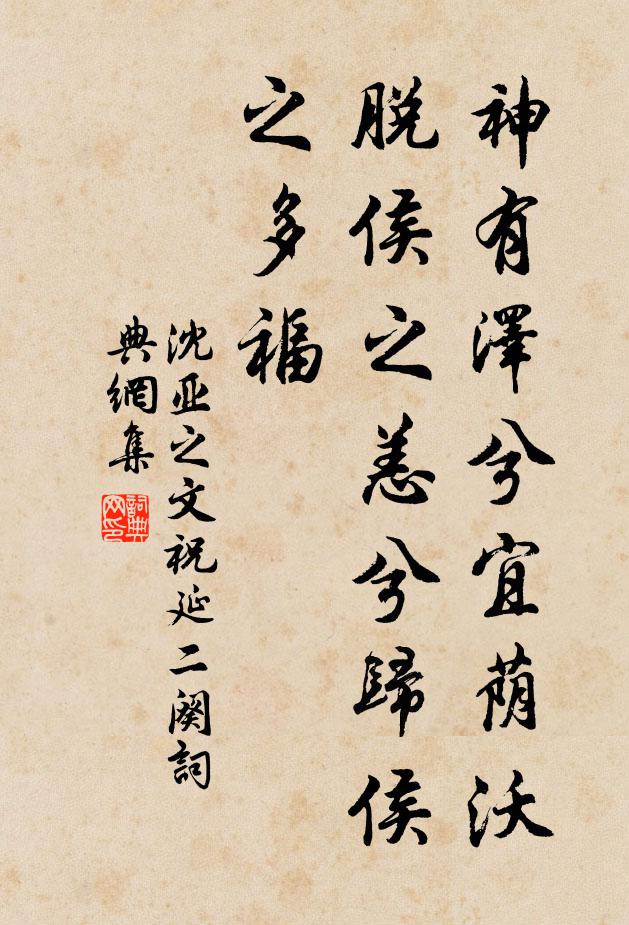 神有澤兮宜荫沃
脱侯之恙兮歸侯
之多福
沈亚之文祝延二阕詞
典網集
詞典网印